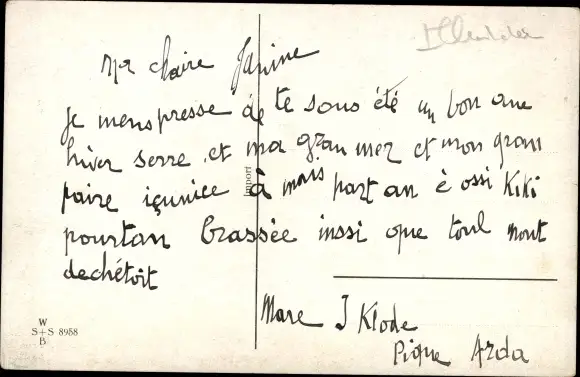 Illustrateur
Ma chaire Janine
Je mens presse de te sous été un bon ane
hiver serre et ma gran mez et mon gran
paire içunice à mois part an è ossi Kiki
pourtan brassée inssi que toul mont
dechétoit
Import
Marc J Klode
Pique Arda
W
S+S 8958
B